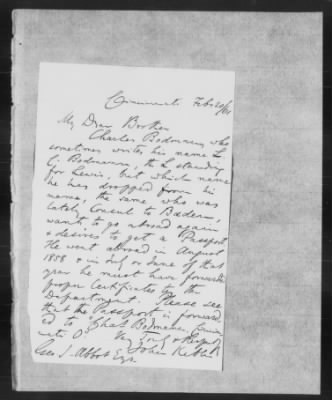 Cincinnati Feb 20/61
My Dear Brother
Charles Bodmann, who
sometimes writes his name L
C. Bodmann, the L standing
for Lewis, but which name
he has dropped from his
name, the same who was
lately Consul to Baden,
wants to go abroad again
& desires to get a Passport
He went abroad in August
1858 & in Jul or June of that
year he must have forwarded
proper Certificates to the
Department. Please see
that the Passport is forward
ed to "Chas Bodmann, Cincin
nati O"
Yrs Truly & Respcty
John
Geo J. Abbot Esq